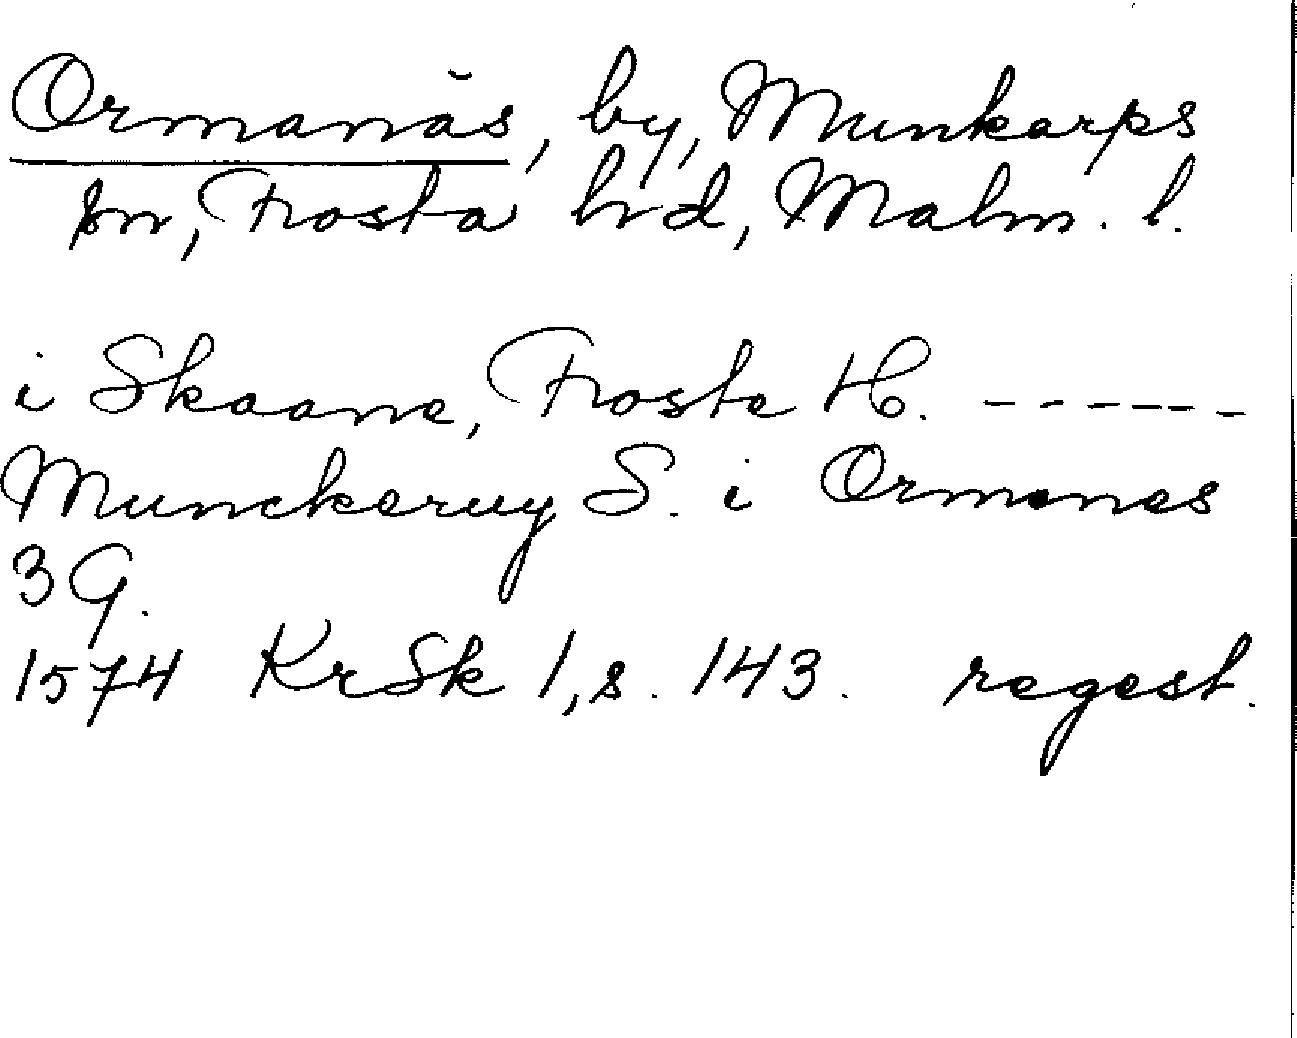 Ormanäs, by, Munkarps
sn, Frosta hrd, Malm. l.
i Skaane, Froste H. ------
Munckeruy S. i Ormenes
3 G.
1574 KrSk 1, s. 143. regest.